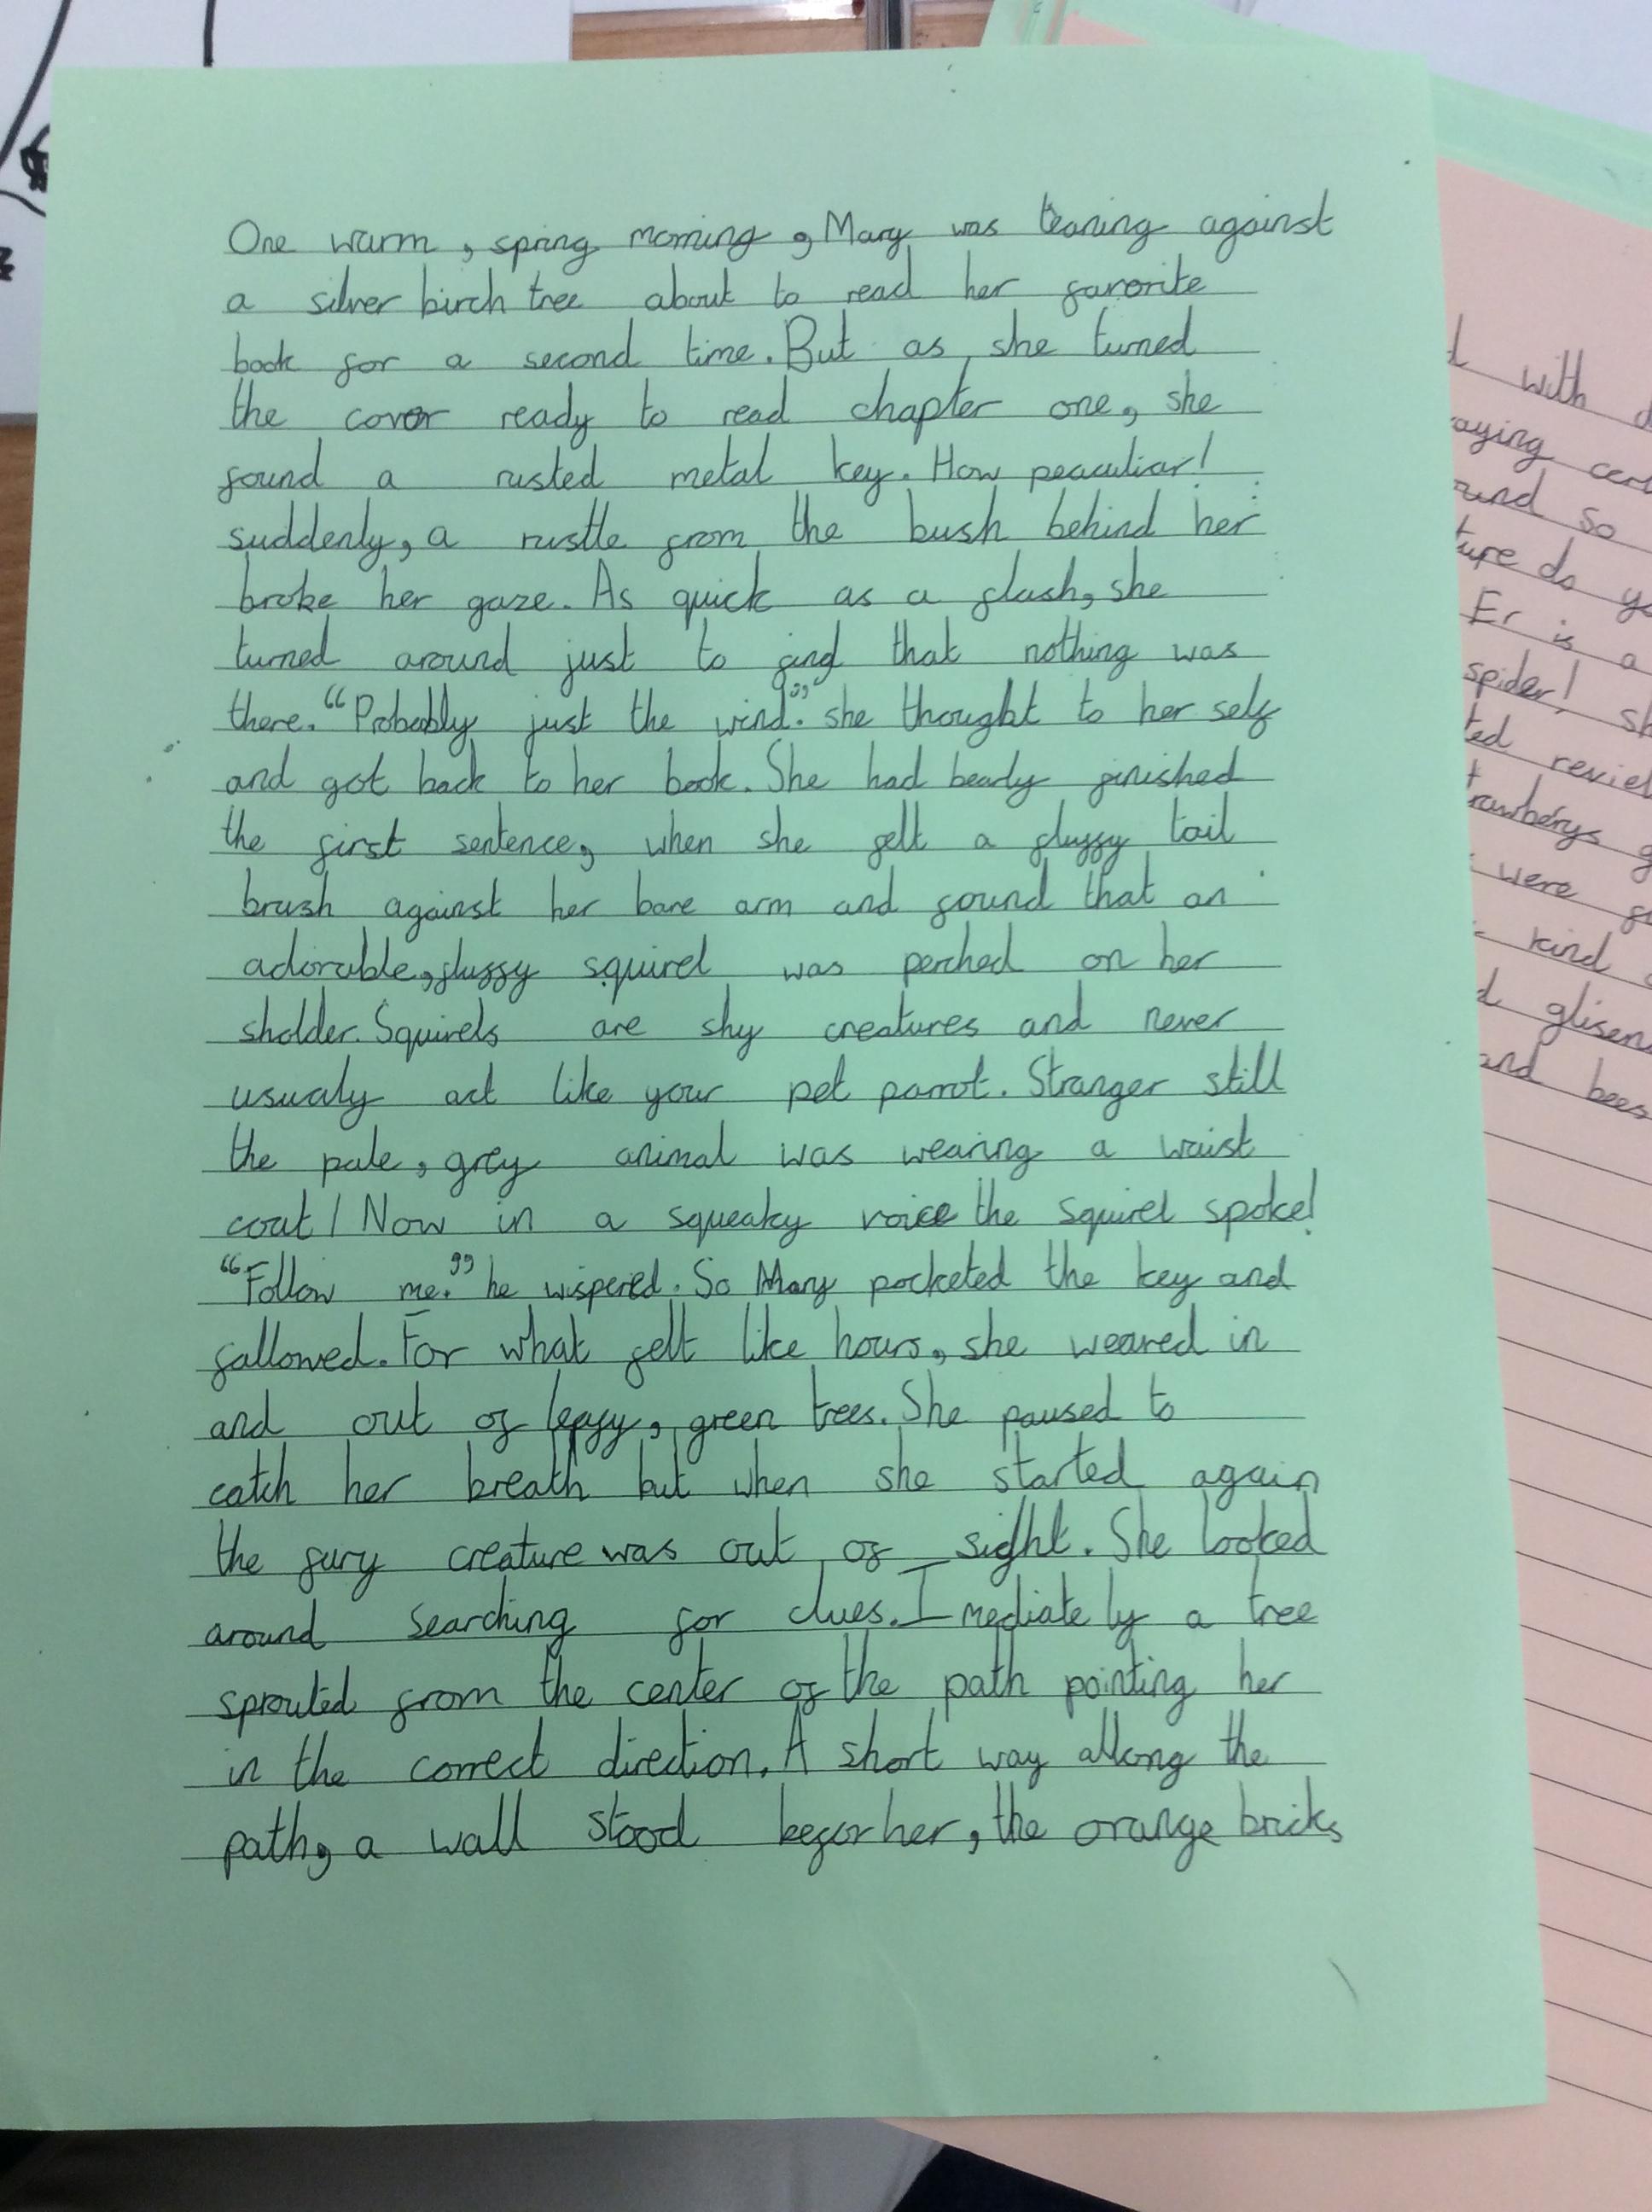 One warm, spring morning, Mary was leaning against
a silver birch tree about to read her favorite
book for a second time. But as she turned
the cover ready to read chapter one, she
found a rusted metal key. How peaculiar!
suddenly, a rustle from the bush behind her
broke her gaze. As quick as a flash, she
turned around just to find that nothing was
there. “Probably just the wind.” she thought to her self
and got back to her book. She had bearly finished
the first sentence, when she felt a fluffy tail
brush against her bare arm and found that an
adorable, fluffy squirel was perched on her
sholder. Squirels are shy creatures and never
usualy act like your pet parrot. Stranger still
the pale, grey animal was wearing a waist
coat! Now in a squeaky voice the squirel spoke!
“Follow me.” he wispered. So Mary pocketed the key and
followed. For what felt like hours, she weaved in
and out of leafy, green trees. She paused to
catch her breath but when she started again
the fury creature was out of sight. She looked
around searching for clues. Imediately a tree
sprouted from the center of the path pointing her
in the correct direction. A short way allong the
path, a wall stood befor her, the orange bricks
with
aying
und so
ture do
Er is a
spider!
ted
rawberys
were
kind
glisen
and bees